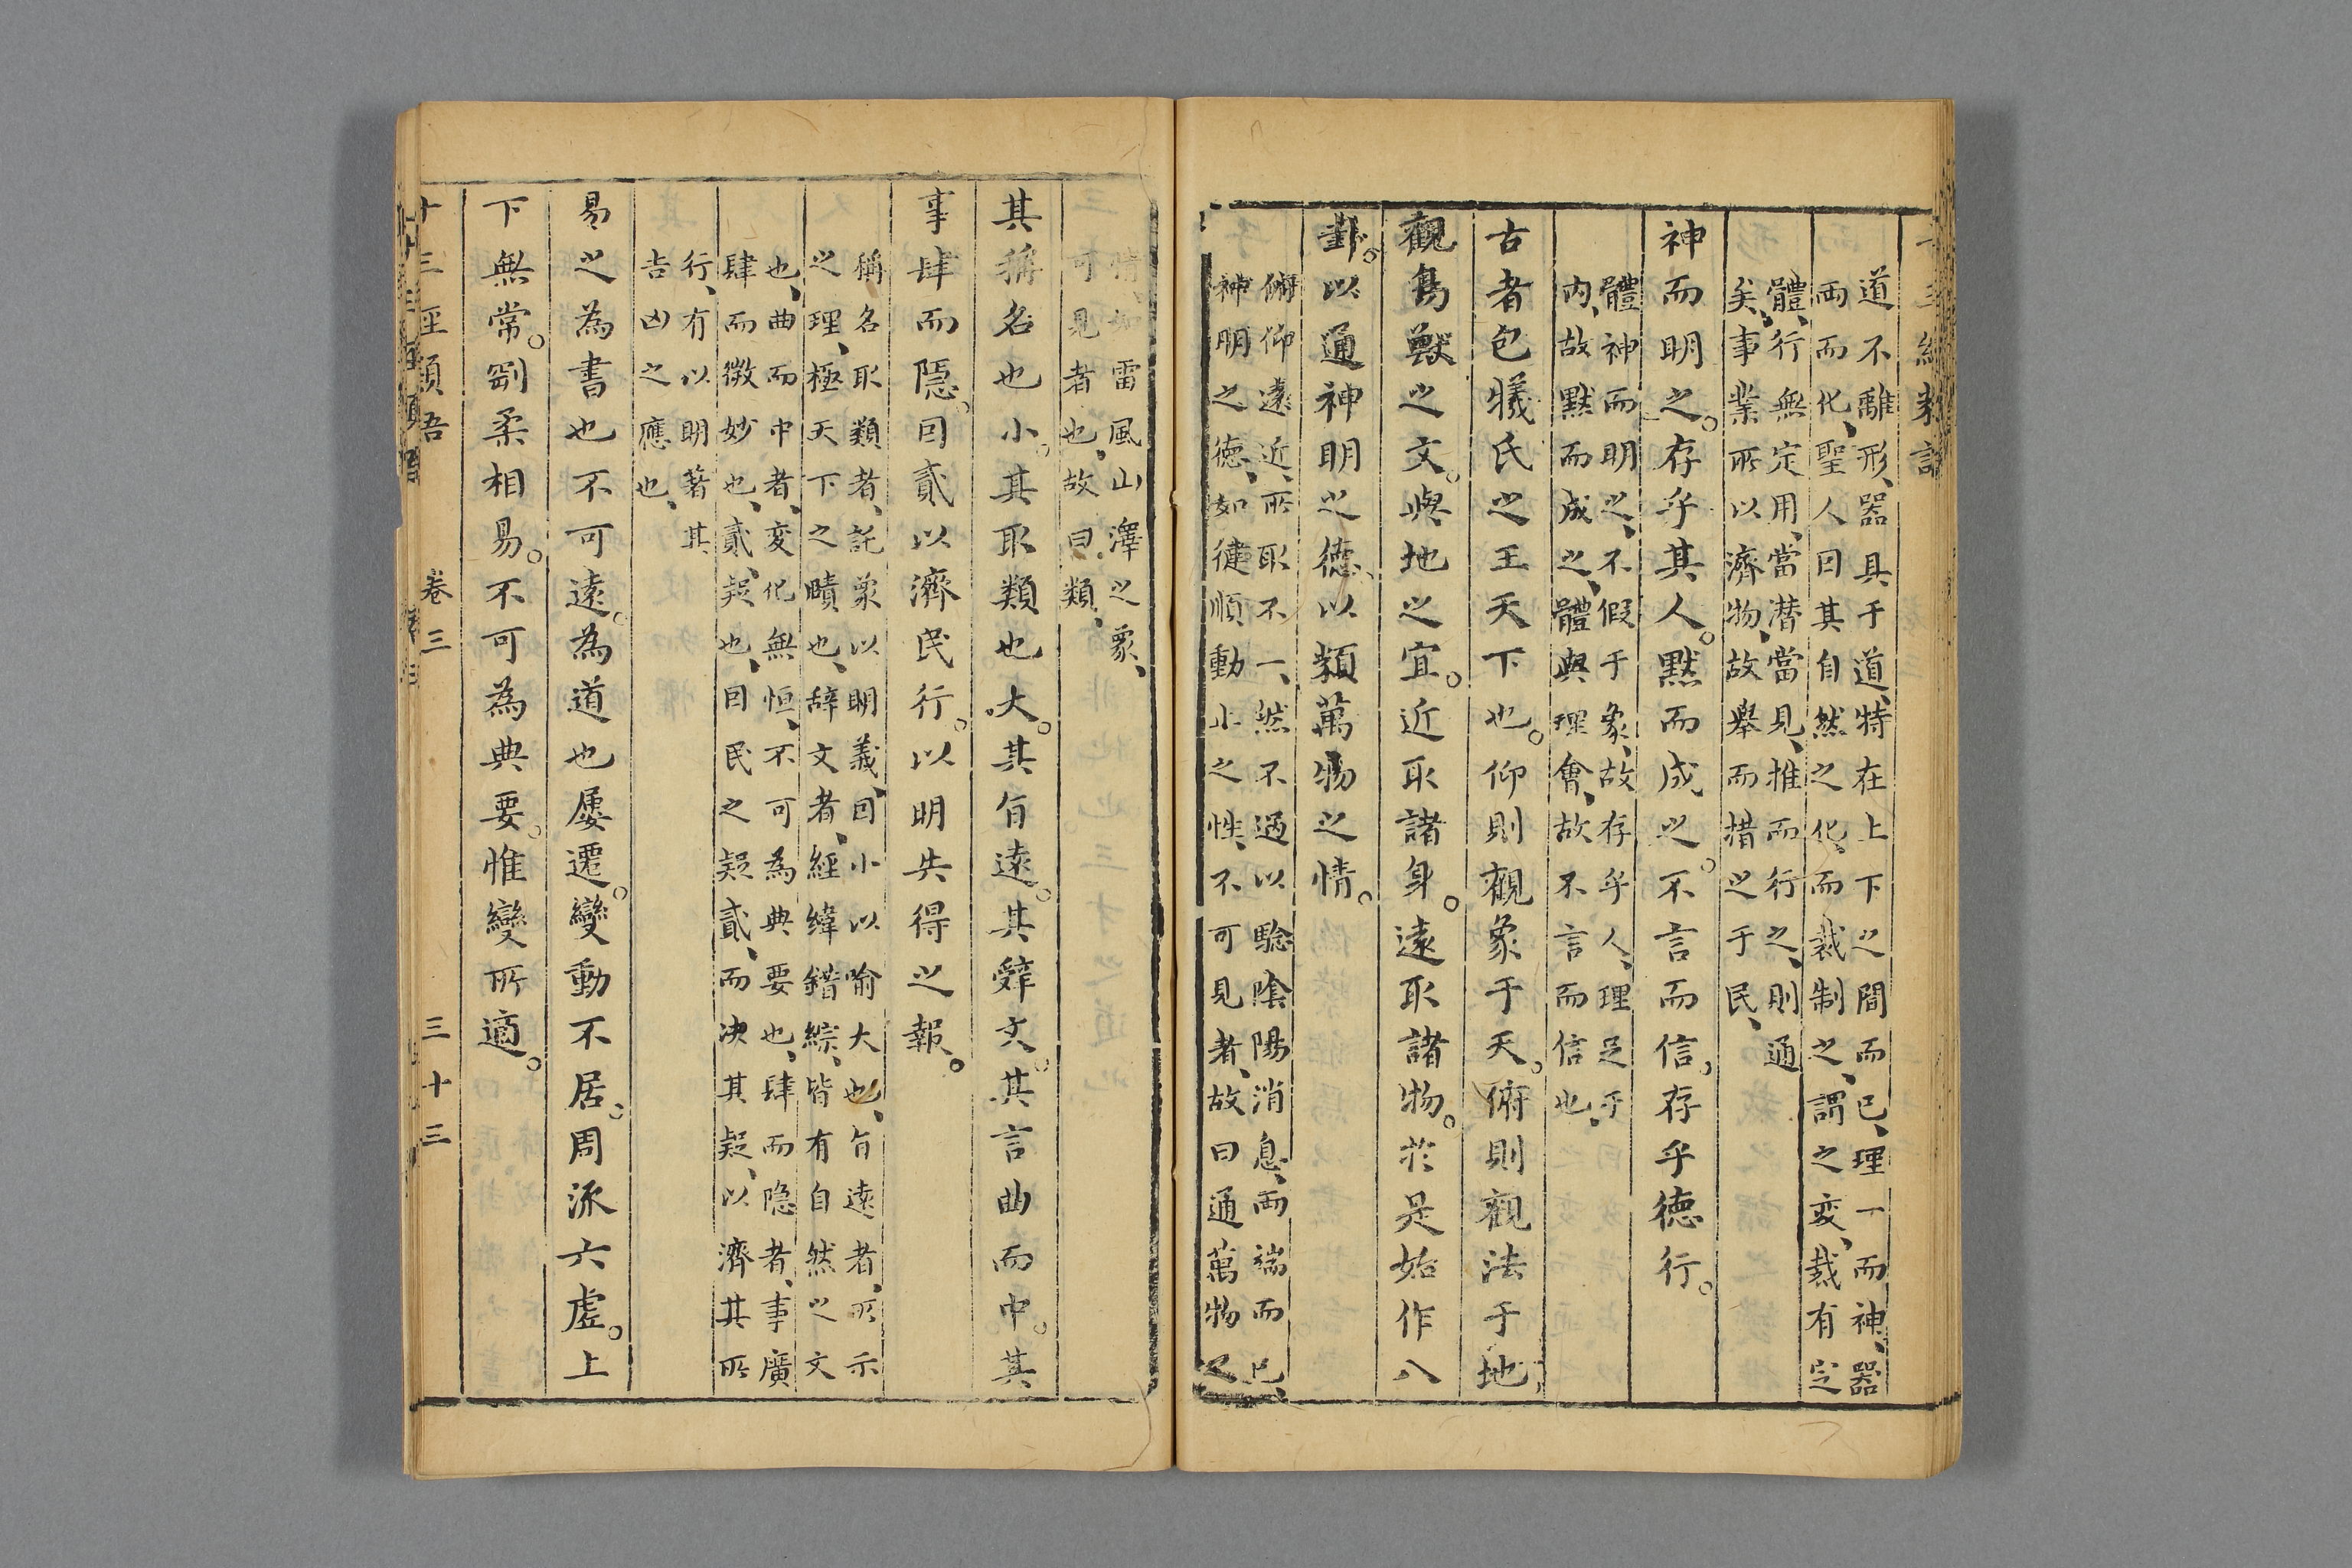 道不離形、器具于道、特在上下之間而已、理一而神、器
両而化、聖人因其自然之化、而裁制之、謂之変、裁有定
體、行無定用、當潜當見、推而行之、則通
矣、事業所以濟物、故舉而措之于民、
神而明之。存乎其人。黙而成之。不言而信。存乎德行。
體神而明之、不假于象、故存乎人、理足于
内、故黙而成之、體與理會、故不言而信也、
古者包犧氏之王天下也。仰則觀象于天。俯則觀法于地
觀鳥獸之文。與地之宜。近取諸身。遠取諸物。於是始作八
卦。以通神明之德、以類萬物之情。
俯仰遠近、所取不一、然不過以驗陰陽消息、両端而已、
神明之德、如健順動止之性、不可見者、故曰通萬物之
情、如雷風山澤之象、
可見者也、故曰類、
其稱名也小。其取類也大。其旨遠。其辭文。其言曲而中。其
事肆而隱。因貳以濟民行。以明失得之報。
稱名取類者、託象以明義、因小以喻大也、旨遠者、所示
之理、極天下之賾也、辞文者、經緯錯綜、皆有自然之文
也、曲而中者、変化無恒、不可為典要也、肆而隐者、事廣
肆而微妙也、貳、疑也、因民之疑貳、而决其疑、以濟其所
行、有以明著其
吉凶之應也、
易之為書也不可遠。為道也屢遷。變動不居。周流六虛。上
下無常。剛柔相易。不可為典要。惟變所適。
十三經類語 卷三 三十三